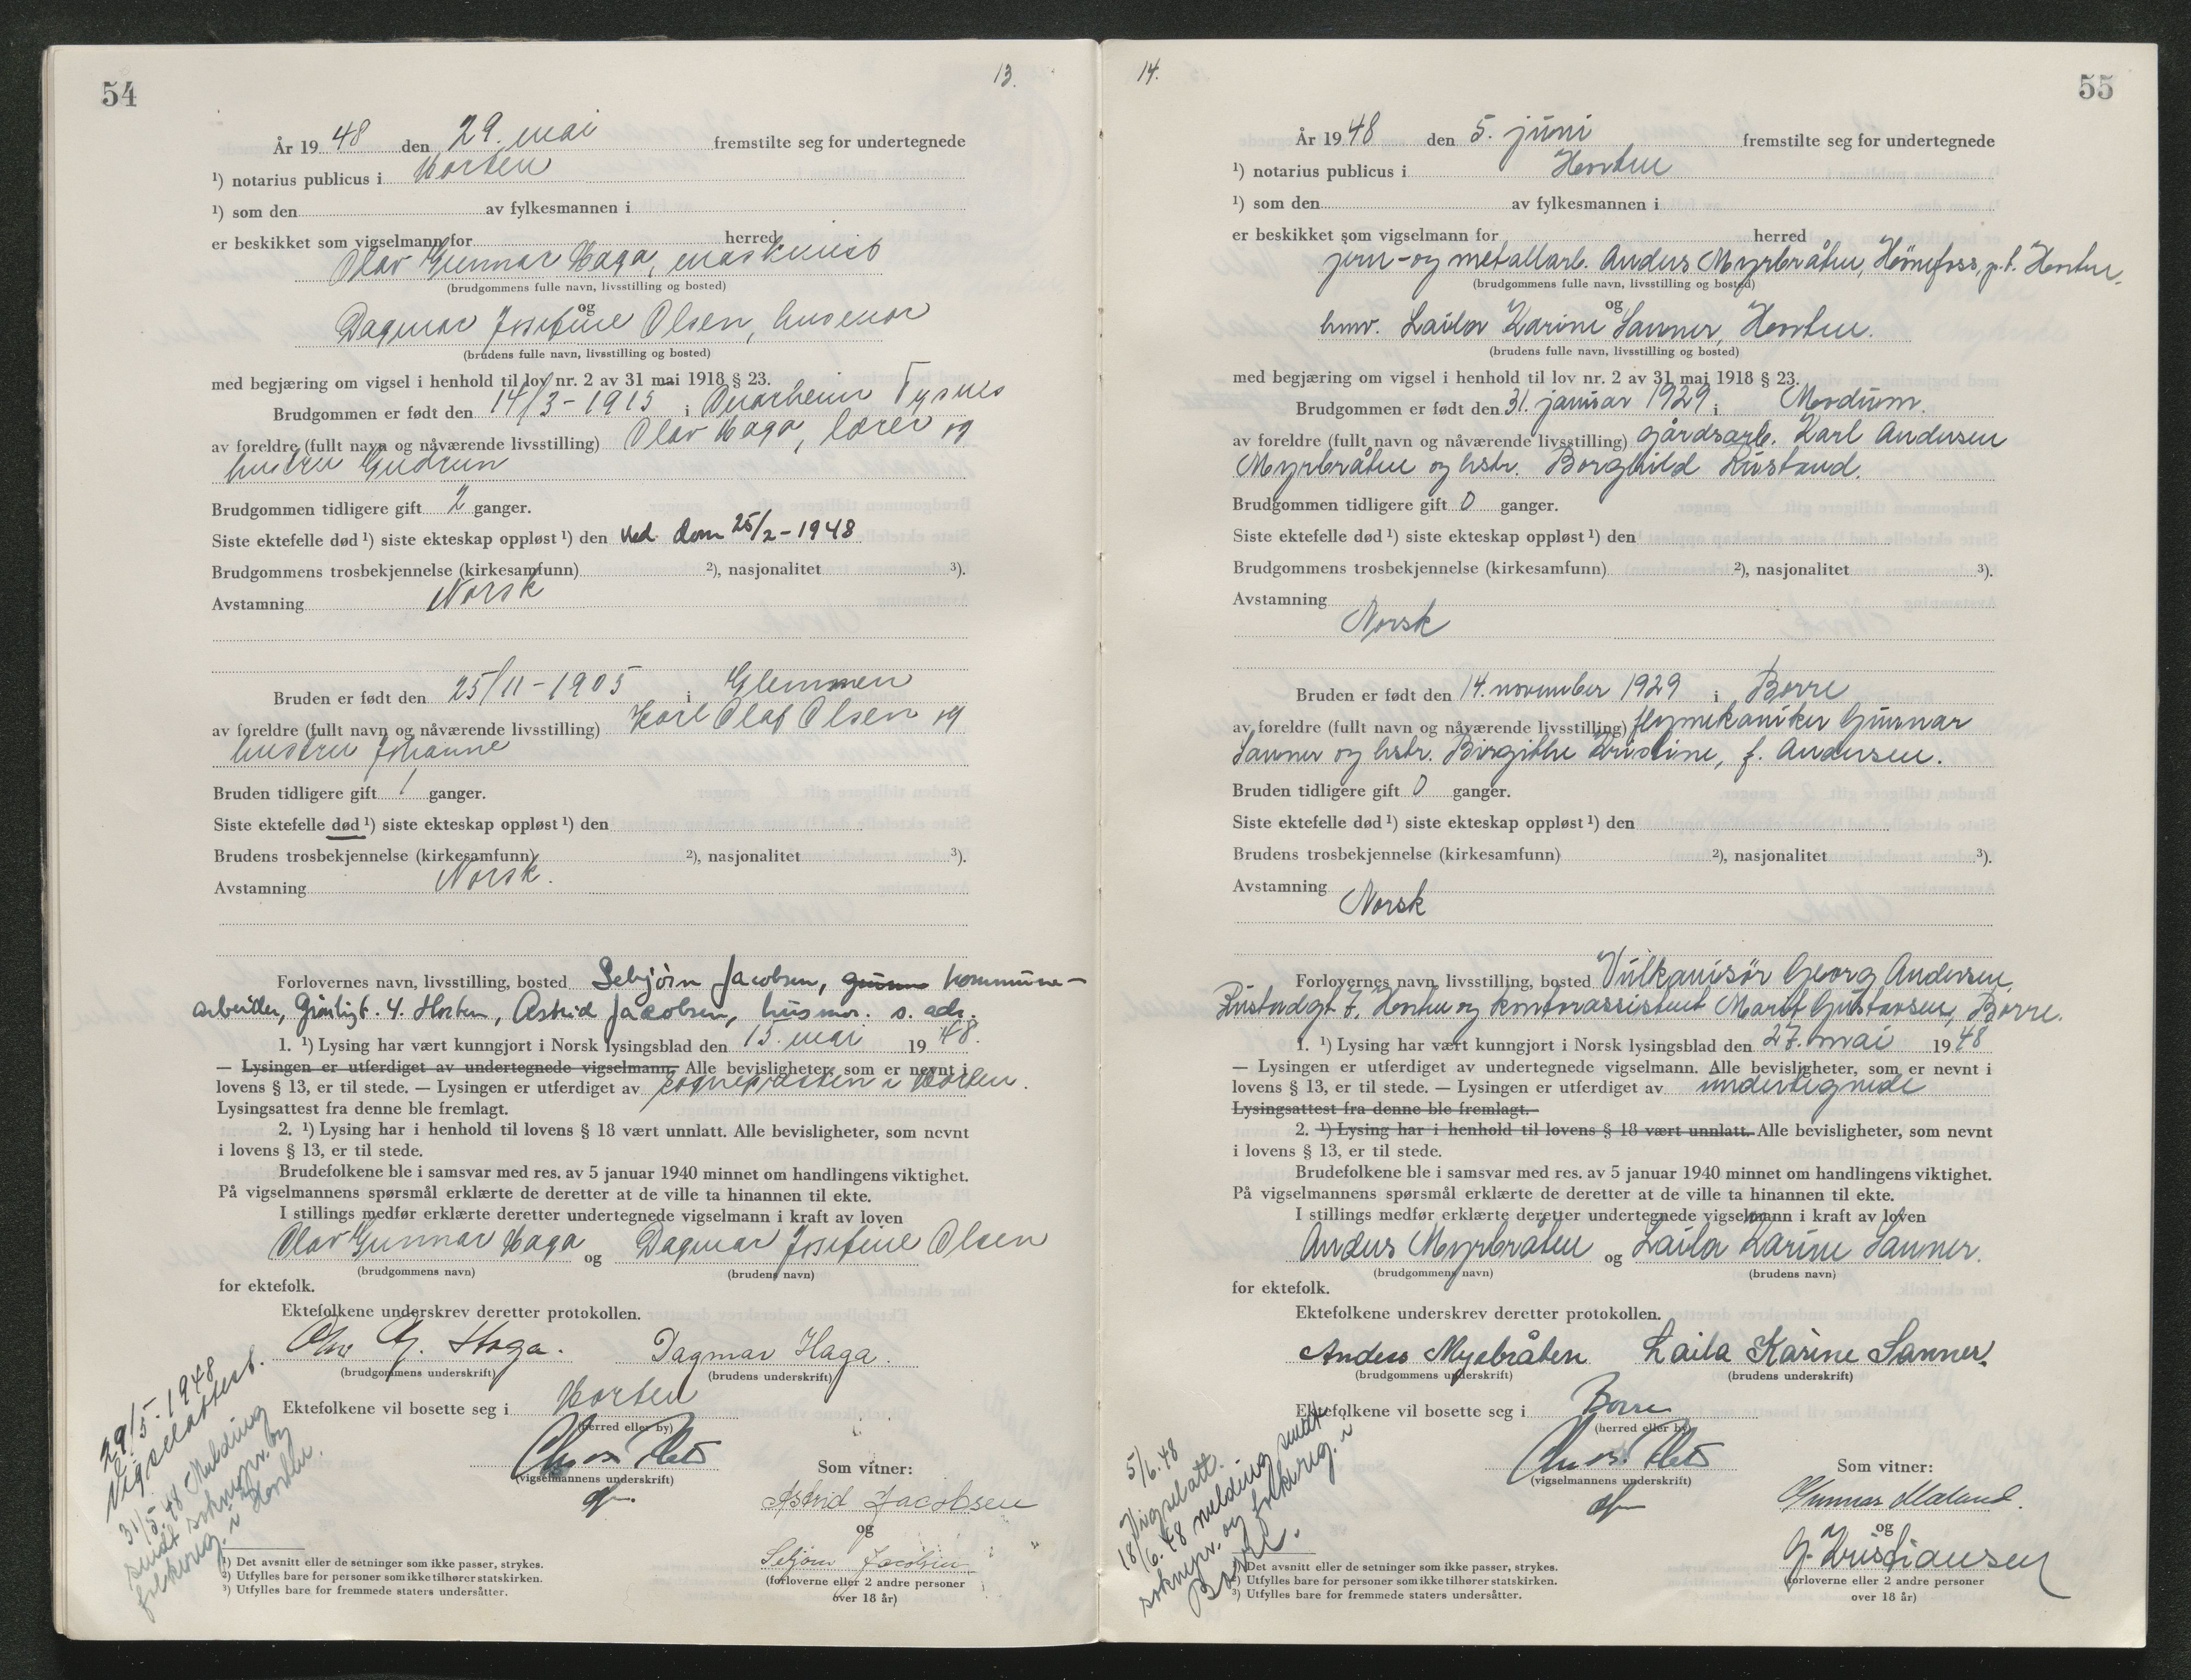 54
13.
År 1948 den 29. mai fremstilte seg for undertegnede
¹) notarius publicus i Horten
¹) som den av fylkesmannen i
er beskikket som vigselmann for herred
Olav Gunnar Haga, maskinist
(brudgommens fulle navn, livsstilling og bosted)
og
Dagmar Josefine Olsen, husmor
(brudens fulle navn, livsstilling og bosted)
med begjæring om vigsel i henhold til lov nr. 2 av 31 mai 1918 § 23.
Brudgommen er født den 14/3-1915 i Onarheim Tysnes
av foreldre (fullt navn og nåværende livsstilling) Olav Haga, lærer og
hustru Gudrun
Brudgommen tidligere gift 2 ganger.
Siste ektefelle død ¹) siste ekteskap oppløst ¹) den ved dom 25/2-1948
Brudgommens trosbekjennelse (kirkesamfunn) ²), nasjonalitet ³).
Avstamning Norsk
Bruden er født den 25/11-1905 i Glemmen
av foreldre (fullt navn og nåværende livsstilling) Karl Olaf Olsen og
hustru Johanne
Bruden tidligere gift 1 ganger.
Siste ektefelle død ¹) siste ekteskap oppløst ¹) den
Brudens trosbekjennelse (kirkesamfunn) ²), nasjonalitet ³).
Avstamning Norsk.
Forlovernes navn, livsstilling, bosted Sebjörn Jacobsen, kommune-
arbeider, 4. Horten, Astrid Jacobsen, husmor. s. adr.
1. ¹) Lysing har vært kunngjort i Norsk lysingsblad den 15. mai 1948.
— Lysingen er utferdiget av undertegnede vigselmann. Alle bevisligheter, som er nevnt i
lovens § 13, er til stede. — Lysingen er utferdiget av sognepresten i Horten.
Lysingsattest fra denne ble fremlagt.
2. ¹) Lysing har i henhold til lovens § 18 vært unnlatt. Alle bevisligheter, som nevnt
i lovens § 13, er til stede.
Brudefolkene ble i samsvar med res. av 5 januar 1940 minnet om handlingens viktighet.
På vigselmannens spørsmål erklærte de deretter at de ville ta hinannen til ekte.
I stillings medfør erklærte deretter undertegnede vigselmann i kraft av loven
Olav Gunnar Haga og Dagmar Josefine Olsen
(brudgommens navn) (brudens navn)
for ektefolk.
Ektefolkene underskrev deretter protokollen.
Olav G. Haga. Dagmar Haga.
(brudgommens underskrift) (brudens underskrift)
Ektefolkene vil bosette seg i Horten
(herred eller by)
(vigselmannens underskrift)
Som vitner:
Astrid Jacobsen
og
Sebjörn Jacobsen
(forloverne eller 2 andre personer
over 18 år)
29/5-1948
Vigselattest.
31/5-48 Melding
sendt soknepr. og
folkereg. i Horten.
¹) Det avsnitt eller de setninger som ikke passer, strykes.
²) Utfylles bare for personer som ikke tilhører statskirken.
³) Utfylles bare for fremmede staters undersåtter.
14.
55
År 1948 den 5. juni fremstilte seg for undertegnede
¹) notarius publicus i Horten
¹) som den av fylkesmannen i
er beskikket som vigselmann for herred
jern- og metallarb. Anders Myrbråten, Hønefoss, p.t. Horten.
(brudgommens fulle navn, livsstilling og bosted)
og
hmv. Laila Karine Sanner, Horten.
(brudens fulle navn, livsstilling og bosted)
med begjæring om vigsel i henhold til lov nr. 2 av 31 mai 1918 § 23.
Brudgommen er født den 31. januar 1929 i Modum.
av foreldre (fullt navn og nåværende livsstilling) gårdsarb. Karl Andersen
Myrbråten og hstr. Borghild Rustand.
Brudgommen tidligere gift 0 ganger.
Siste ektefelle død ¹) siste ekteskap oppløst ¹) den
Brudgommens trosbekjennelse (kirkesamfunn) ²), nasjonalitet ³).
Avstamning
Norsk
Bruden er født den 14. november 1929 i Borre
av foreldre (fullt navn og nåværende livsstilling) flymekaniker Gunnar
Sanner og hstr. Birgithe Kristine, f. Andersen.
Bruden tidligere gift 0 ganger.
Siste ektefelle død ¹) siste ekteskap oppløst ¹) den
Brudens trosbekjennelse (kirkesamfunn) ²), nasjonalitet ³).
Avstamning
Norsk
Forlovernes navn, livsstilling, bosted Vulkanisör Georg Andersen,
7. Horten og kontorassistent Marit Gustavsen, Borre.
1. ¹) Lysing har vært kunngjort i Norsk lysingsblad den 27. mai 1948
— Lysingen er utferdiget av undertegnede vigselmann. Alle bevisligheter, som er nevnt i
lovens § 13, er til stede. — Lysingen er utferdiget av undertegnede
Lysingsattest fra denne ble fremlagt.
2. ¹) Lysing har i henhold til lovens § 18 vært unnlatt. Alle bevisligheter, som nevnt
i lovens § 13, er til stede.
Brudefolkene ble i samsvar med res. av 5 januar 1940 minnet om handlingens viktighet.
På vigselmannens spørsmål erklærte de deretter at de ville ta hinannen til ekte.
I stillings medfør erklærte deretter undertegnede vigselmann i kraft av loven
Anders Myrbråten og Laila Karine Sanner.
(brudgommens navn) (brudens navn)
for ektefolk.
Ektefolkene underskrev deretter protokollen.
Anders Myrbråten Laila Karine Sanner.
(brudgommens underskrift) (brudens underskrift)
Ektefolkene vil bosette seg i Borre
(herred eller by)
(vigselmannens underskrift)
Som vitner:
Gunnar
og
G. Kristiansen
(forloverne eller 2 andre personer
over 18 år)
5/6.48
Vigselatt.
18/6.48 melding sendt
soknepr. og folkereg. i
Borre.
¹) Det avsnitt eller de setninger som ikke passer, strykes.
²) Utfylles bare for personer som ikke tilhører statskirken.
³) Utfylles bare for fremmede staters undersåtter.